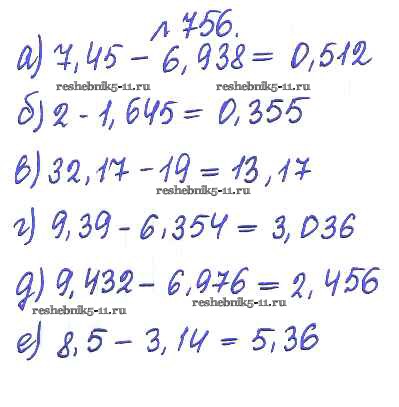 л 756.
а) 7,45 - 6,938 = 0,512
reshebnik5-11.ru reshebnik5-11.ru
б) 2 - 1,645 = 0,355
в) 32,17 - 19 = 13,17
reshebnik5-11.ru
г) 9,39 - 6,354 = 3,036
д) 9,432 - 6,976 = 2,456
reshebnik5-11.ru reshebnik5-11.ru
е) 8,5 - 3,14 = 5,36